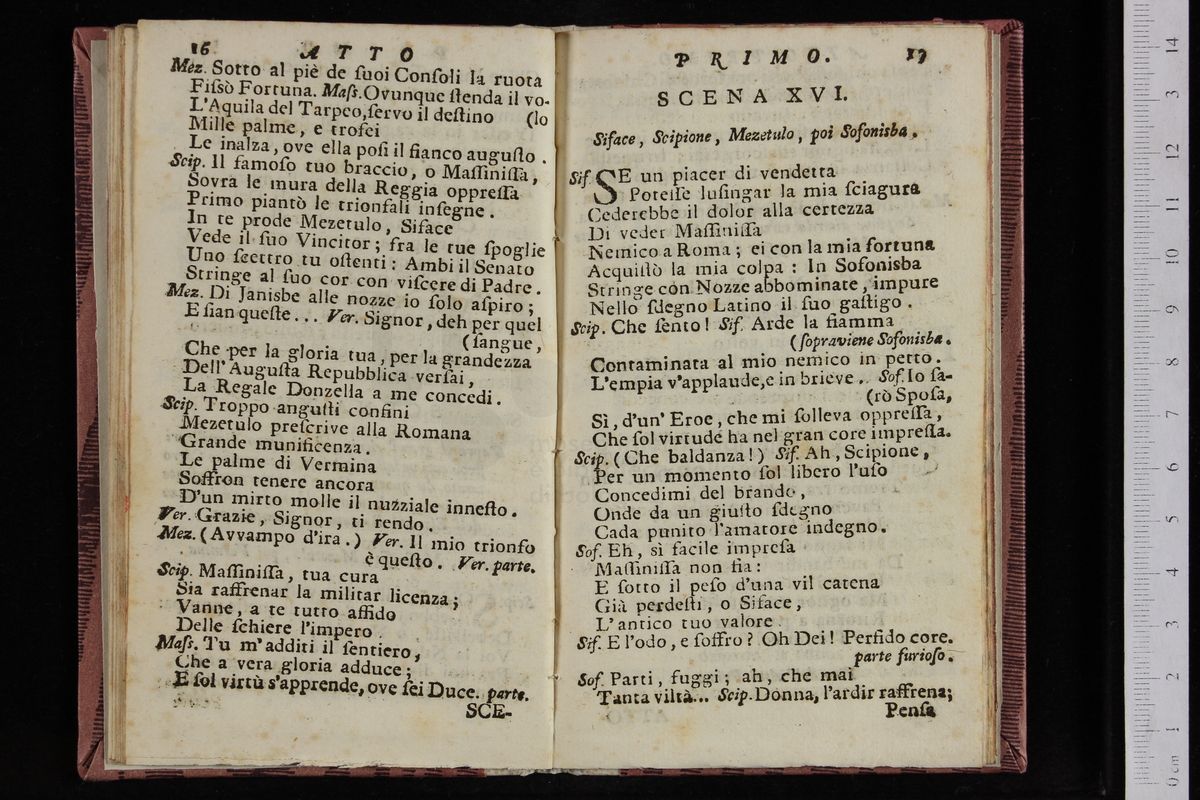 16 ATTO
Mez. Sotto al piè de ſuoi Conſoli la ruota
Fiſsò Fortuna. Maſs. Ovunque ſtenda il vo-
L'Aquila del Tarpeo, ſervo il deſtino (lo
Mille palme, e trofei
Le inalza, ove ella poſi il fianco auguſto.
Scip. Il famoſo tuo braccio, o Maſſiniſſa,
Sovra le mura della Reggia oppreſſa
Primo piantò le trionfali inſegne.
In te prode Mezetulo, Siface
Vede il ſuo Vincitor; fra le tue ſpoglie
Uno ſcettro tu oſtenti: Ambi il Senato
Stringe al ſuo cor con viſcere di Padre.
Mez. Di Janisbe alle nozze io ſolo aſpiro;
E ſian queſte... Ver. Signor, deh per quel
(ſangue,
Che per la gloria tua, per la grandezza
Dell' Auguſta Repubblica verſai,
La Regale Donzella a me concedi.
Scip. Troppo anguſti confini
Mezetulo preſcrive alla Romana
Grande munificenza.
Le palme di Vermina
Soffron tenere ancora
D'un mirto molle il nuzziale inneſto.
Ver. Grazie, Signor, ti rendo.
Mez. (Avvampo d'ira.) Ver. Il mio trionfo
è queſto. Ver. parte.
Scip. Maſſiniſſa, tua cura
Sia raffrenar la militar licenza;
Vanne, a te tutto affido
Delle ſchiere l'impero.
Maſs. Tu m'additi il ſentiero,
Che a vera gloria adduce;
E ſol virtù s'apprende, ove ſei Duce. parte.
SCE-
PRIMO. 17
SCENA XVI.
Siface, Scipione, Mezetulo, poi Sofonisba.
Sif. SE un piacer di vendetta
Poteſſe luſingar la mia ſciagura
Cederebbe il dolor alla certezza
Di veder Maſſiniſſa
Nemico a Roma; ei con la mia fortuna
Acquiſtò la mia colpa: In Sofonisba
Stringe con Nozze abbominate, impure
Nello ſdegno Latino il ſuo gaſtigo.
Scip. Che ſento! Sif. Arde la fiamma
(ſopraviene Sofonisba.
Contaminata al mio nemico in petto.
L'empia v'applaude, e in brieve.. Sof. Io ſa-
(rò Spoſa,
Sì, d'un' Eroe, che mi ſolleva oppreſſa,
Che ſol virtude ha nel gran core impreſſa.
Scip. (Che baldanza!) Sif. Ah, Scipione,
Per un momento ſol libero l'uſo
Concedimi del brando,
Onde da un giuſto ſdegno
Cada punito l'amatore indegno.
Sof. Eh, sì facile impreſa
Maſſiniſſa non fia:
E ſotto il peſo d'una vil catena
Già perdeſti, o Siface,
L'antico tuo valore.
Sif. E l'odo, e ſoffro? Oh Dei! Perfido core.
parte furioſo.
Sof. Parti, fuggi; ah, che mai
Tanta viltà... Scip. Donna, l'ardir raffrena;
Penſa